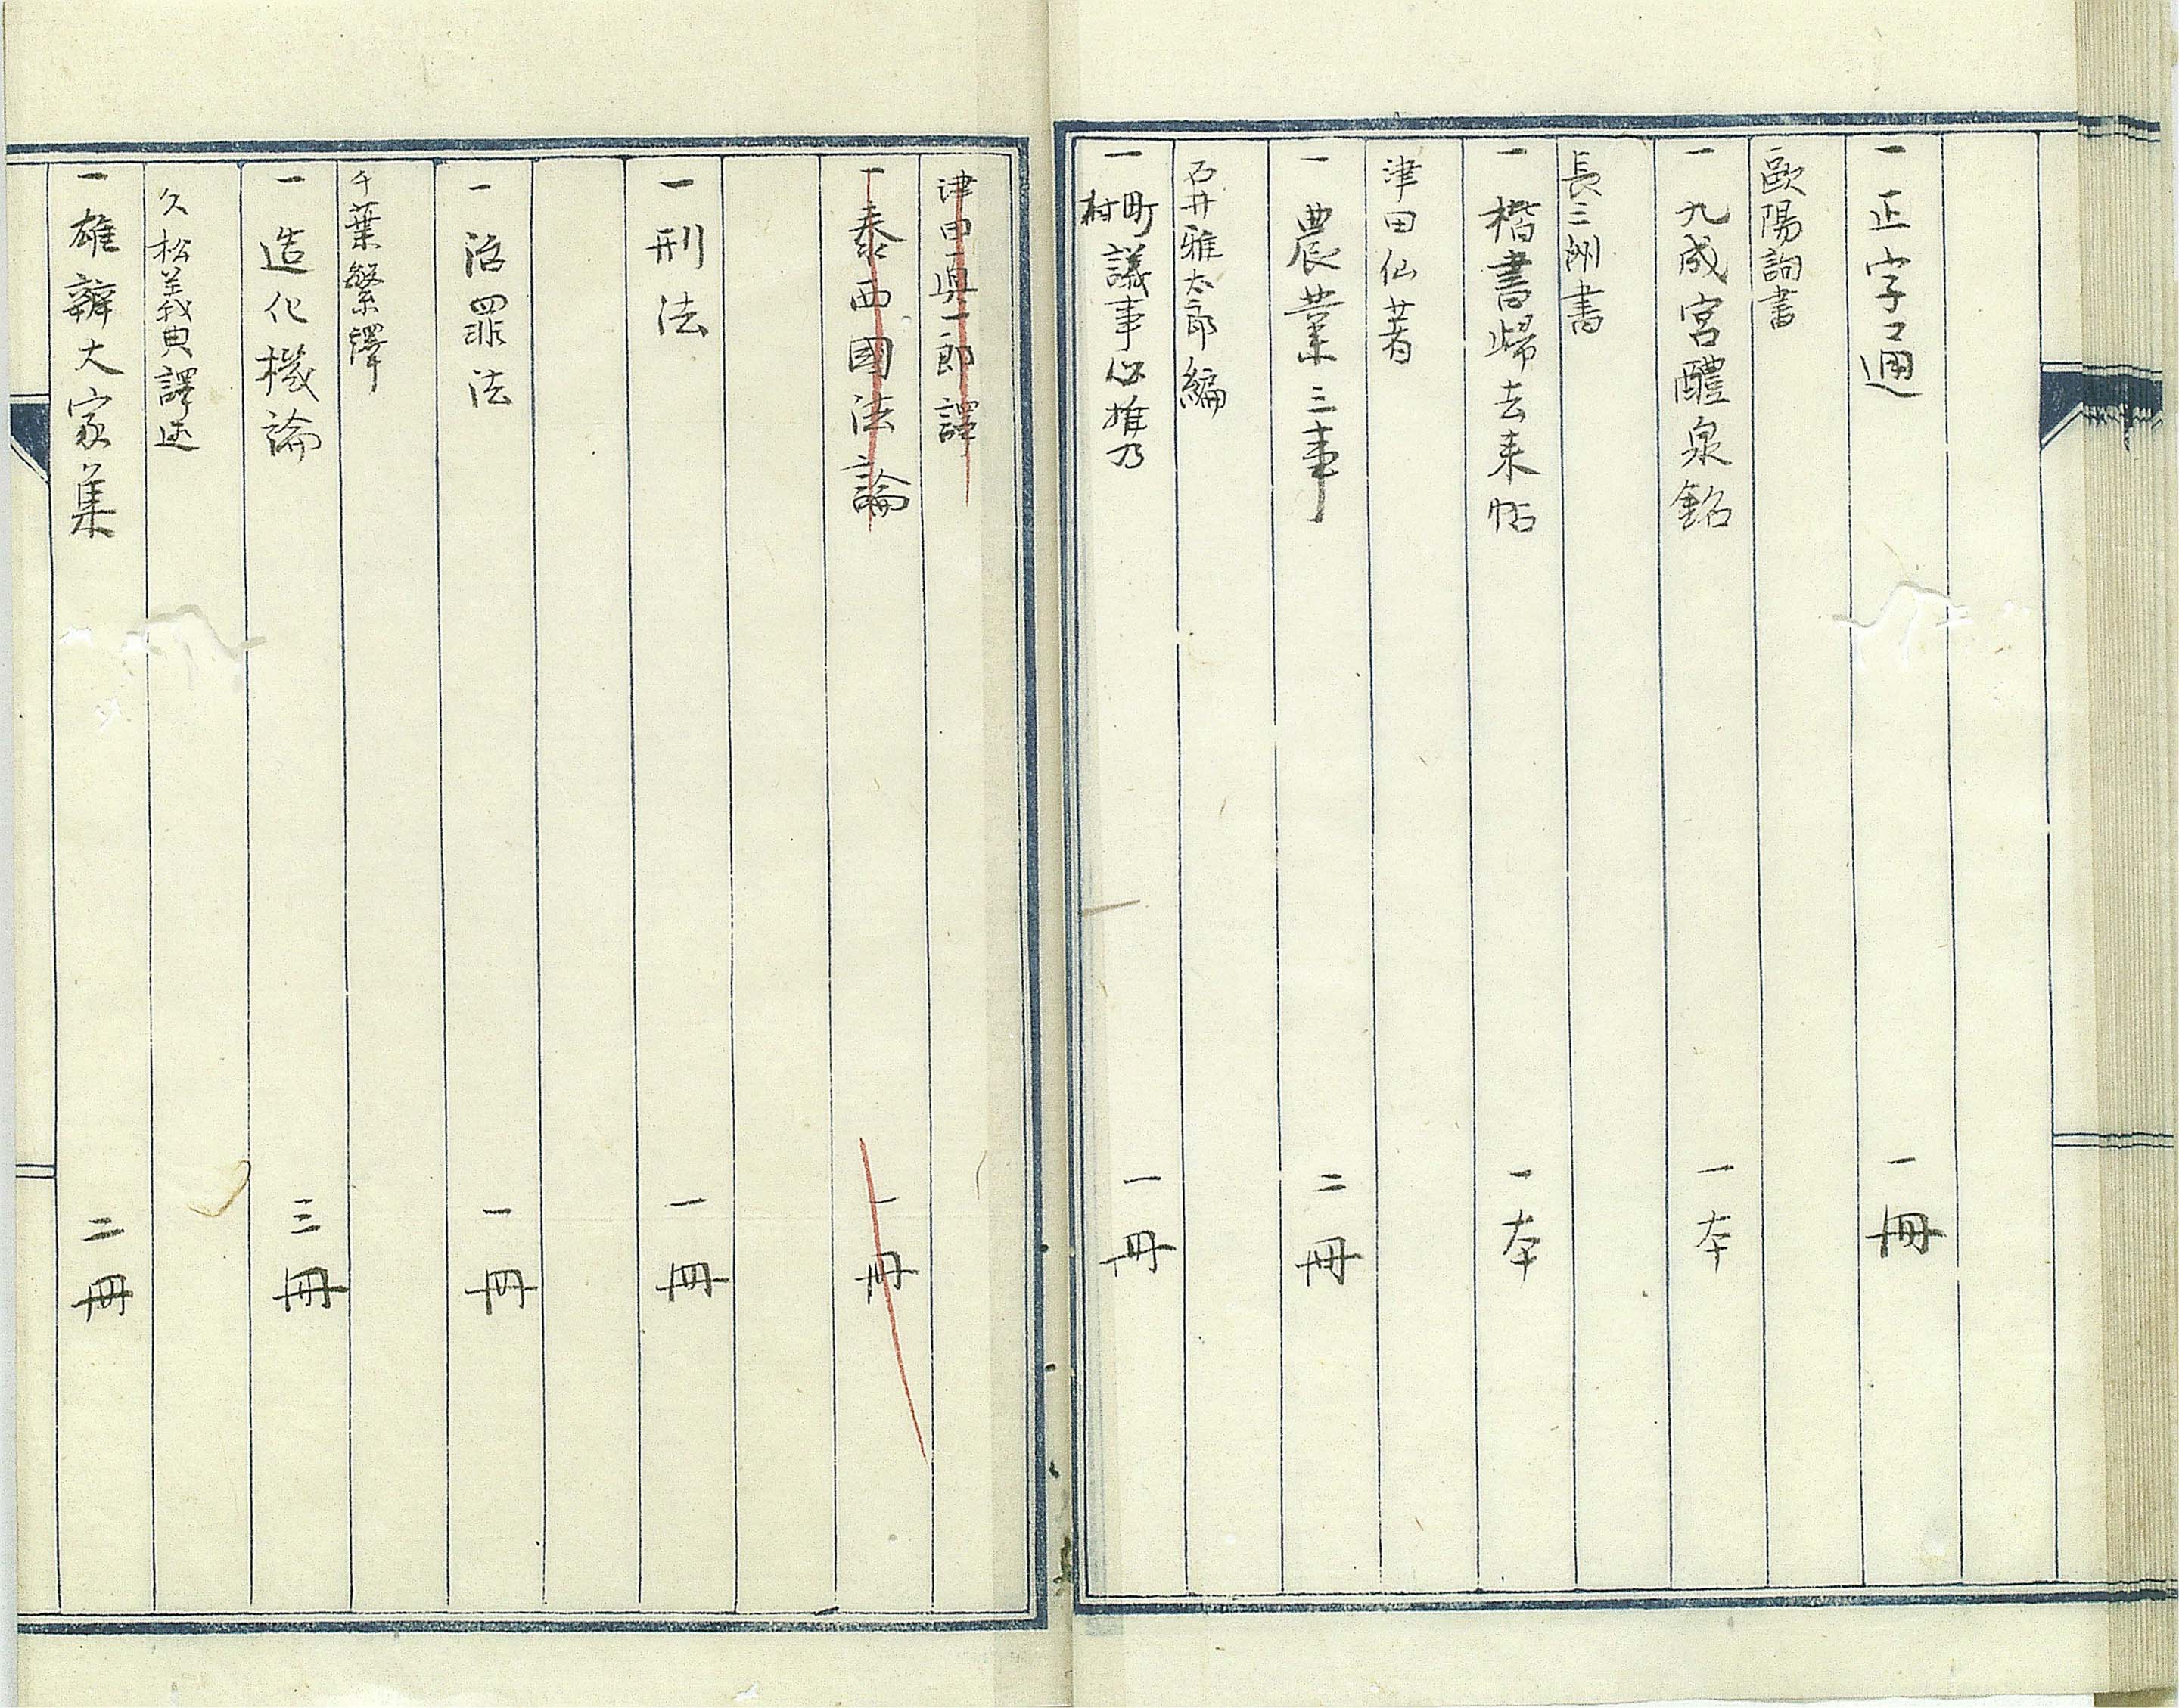 一 正字通 一冊
歐陽詢書
一 九成宮醴泉銘 一本
長三洲書
一 楷書帰去来帖 一本
津田仙著
一 農業三事 二冊
石井雅太郎編
一 町村議事必携 一冊
津田眞一郎譯
一 泰西國法論 一冊
一 刑法 一冊
一 治罪法 一冊
千葉繁譯
一 造化機論 三冊
久松義典譯述
一 雄辨大家集 二冊